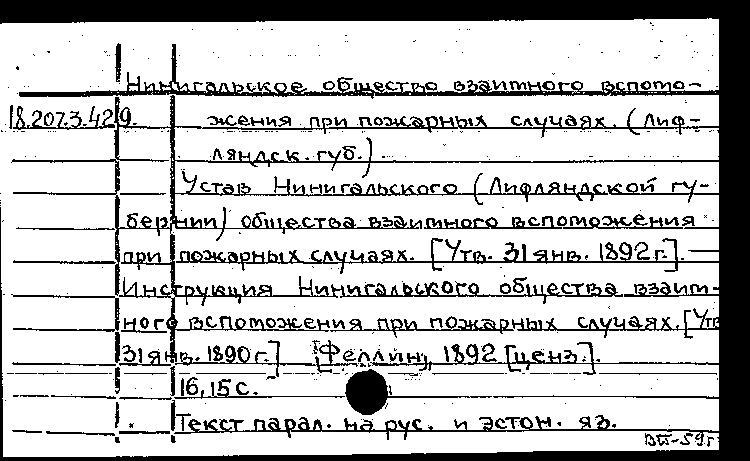 Нинигальское общество взаимного вспомо-
18.207.3.429. жения при пожарных случаях. (Лиф-
ляндск. губ.)
Устав Нинигальского (Лифляндской гу-
бернии) общества взаимного вспоможения
при пожарных случаях. [Утв. 31 янв. 1892 г.].
Инструкция Нинигальского общества взаим-
ного вспоможения при пожарных случаях. [Утв
31 янв. 1890 г.] [Феллин], 1892 [ценз.].
16, 15 с.
Текст парал. на рус. и эстон. яз.